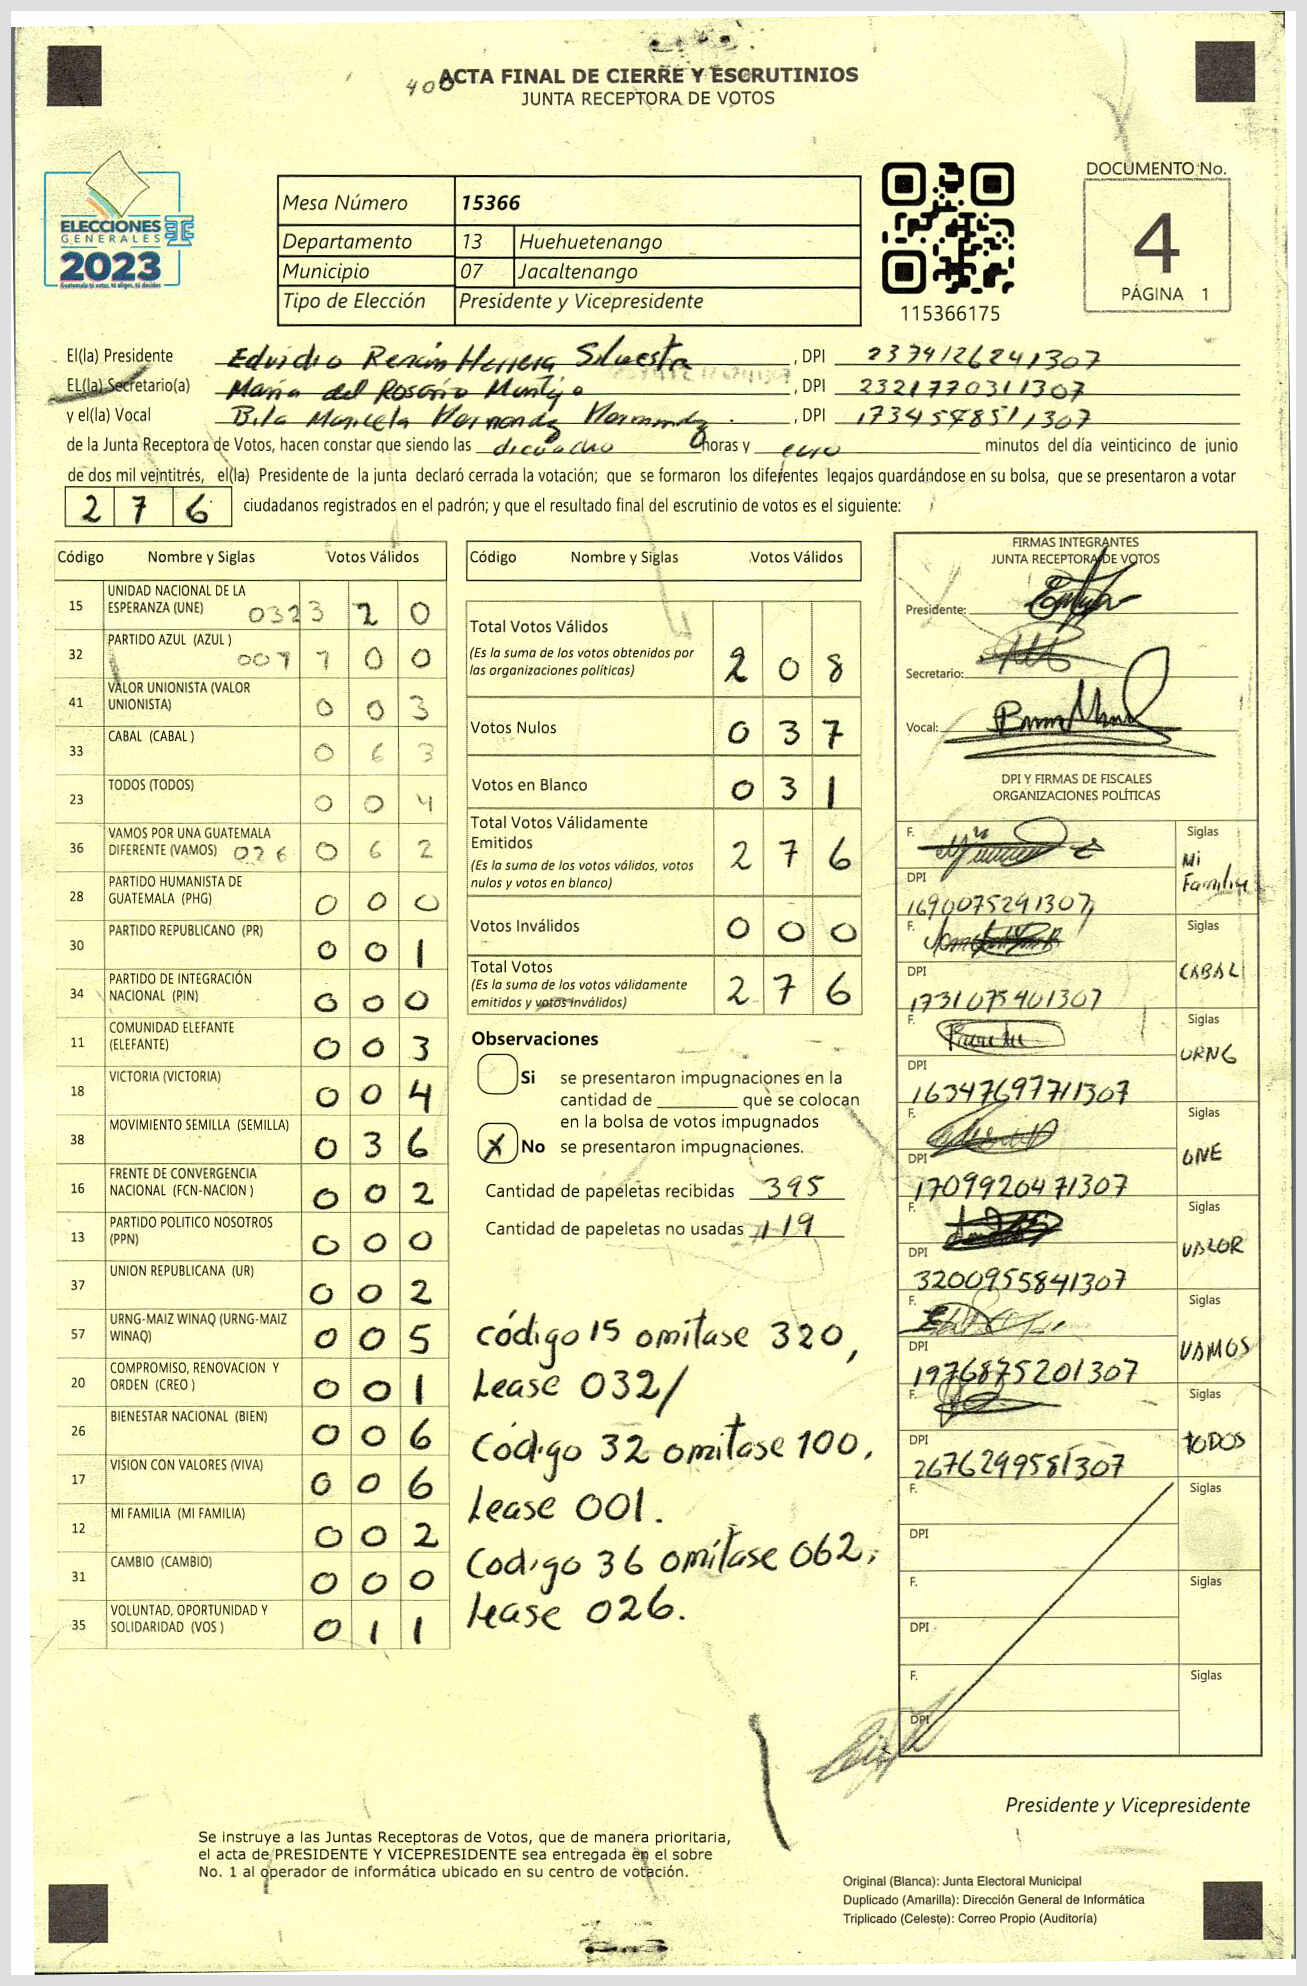 400
ACTA FINAL DE CIERRE Y ESCRUTINIOS
JUNTA RECEPTORA DE VOTOS
ELECCIONES
GENERALES
2023
Guatemala tú votas, tú eliges, tú decides
Mesa Número 15366
Departamento 13 Huehuetenango
Municipio 07 Jacaltenango
Tipo de Elección Presidente y Vicepresidente
115366175
DOCUMENTO No.
4
PÁGINA 1
El(la) Presidente Herrera , DPI 2374126241307
EL(la) Secretario(a) Maria del Rosario Montejo , DPI 2321770311307
y el(la) Vocal , DPI 1734578511307
de la Junta Receptora de Votos, hacen constar que siendo las horas y minutos del día veinticinco de junio
de dos mil veintitrés, el(la) Presidente de la junta declaró cerrada la votación; que se formaron los diferentes legajos guardándose en su bolsa, que se presentaron a votar
276 ciudadanos registrados en el padrón; y que el resultado final del escrutinio de votos es el siguiente:
Código Nombre y Siglas Votos Válidos
15 UNIDAD NACIONAL DE LA
ESPERANZA (UNE) 032 3 2 0
32 PARTIDO AZUL (AZUL ) 001 1 0 0
41 VALOR UNIONISTA (VALOR
UNIONISTA) 0 0 3
33 CABAL (CABAL ) 0 6 3
23 TODOS (TODOS) 0 0 4
36 VAMOS POR UNA GUATEMALA
DIFERENTE (VAMOS) 026 0 6 2
28 PARTIDO HUMANISTA DE
GUATEMALA (PHG) 0 0 0
30 PARTIDO REPUBLICANO (PR) 0 0 1
34 PARTIDO DE INTEGRACIÓN
NACIONAL (PIN) 0 0 0
11 COMUNIDAD ELEFANTE
(ELEFANTE) 0 0 3
18 VICTORIA (VICTORIA) 0 0 4
38 MOVIMIENTO SEMILLA (SEMILLA) 0 3 6
16 FRENTE DE CONVERGENCIA
NACIONAL (FCN-NACION ) 0 0 2
13 PARTIDO POLITICO NOSOTROS
(PPN) 0 0 0
37 UNION REPUBLICANA (UR) 0 0 2
57 URNG-MAIZ WINAQ (URNG-MAIZ
WINAQ) 0 0 5
20 COMPROMISO, RENOVACION Y
ORDEN (CREO ) 0 0 1
26 BIENESTAR NACIONAL (BIEN) 0 0 6
17 VISION CON VALORES (VIVA) 0 0 6
12 MI FAMILIA (MI FAMILIA) 0 0 2
31 CAMBIO (CAMBIO) 0 0 0
35 VOLUNTAD, OPORTUNIDAD Y
SOLIDARIDAD (VOS ) 0 1 1
Código Nombre y Siglas Votos Válidos
Total Votos Válidos
(Es la suma de los votos obtenidos por
las organizaciones políticas) 2 0 8
Votos Nulos 0 3 7
Votos en Blanco 0 3 1
Total Votos Válidamente
Emitidos
(Es la suma de los votos válidos, votos
nulos y votos en blanco) 2 7 6
Votos Inválidos 0 0 0
Total Votos
(Es la suma de los votos válidamente
emitidos y votos inválidos) 2 7 6
Observaciones
Si se presentaron impugnaciones en la
cantidad de ________ que se colocan
en la bolsa de votos impugnados
X No se presentaron impugnaciones.
Cantidad de papeletas recibidas 395
Cantidad de papeletas no usadas 119
código 15 omítase 320,
Lease 032/
Código 32 omitase 100.
Lease 001.
Codigo 36 omítase 062,
Lease 026.
FIRMAS INTEGRANTES
JUNTA RECEPTORA DE VOTOS
Presidente:
Secretario:
Vocal:
DPI Y FIRMAS DE FISCALES
ORGANIZACIONES POLÍTICAS
F. Siglas
Mi
Familia
DPI
1690075291307
F. Siglas
CABAL
DPI
1731075401307
F. Siglas
URNG
DPI
1634769771307
F. Siglas
UNE
DPI
1709920471307
F. Siglas
VALOR
DPI
3200955841307
F. Siglas
VAMOS
DPI
1976875201307
F. Siglas
TODOS
DPI
2676299581307
F. Siglas
DPI
F. Siglas
DPI
F. Siglas
DPI
Presidente y Vicepresidente
Se instruye a las Juntas Receptoras de Votos, que de manera prioritaria,
el acta de PRESIDENTE Y VICEPRESIDENTE sea entregada en el sobre
No. 1 al operador de informática ubicado en su centro de votación.
Original (Blanca): Junta Electoral Municipal
Duplicado (Amarilla): Dirección General de Informática
Triplicado (Celeste): Correo Propio (Auditoría)